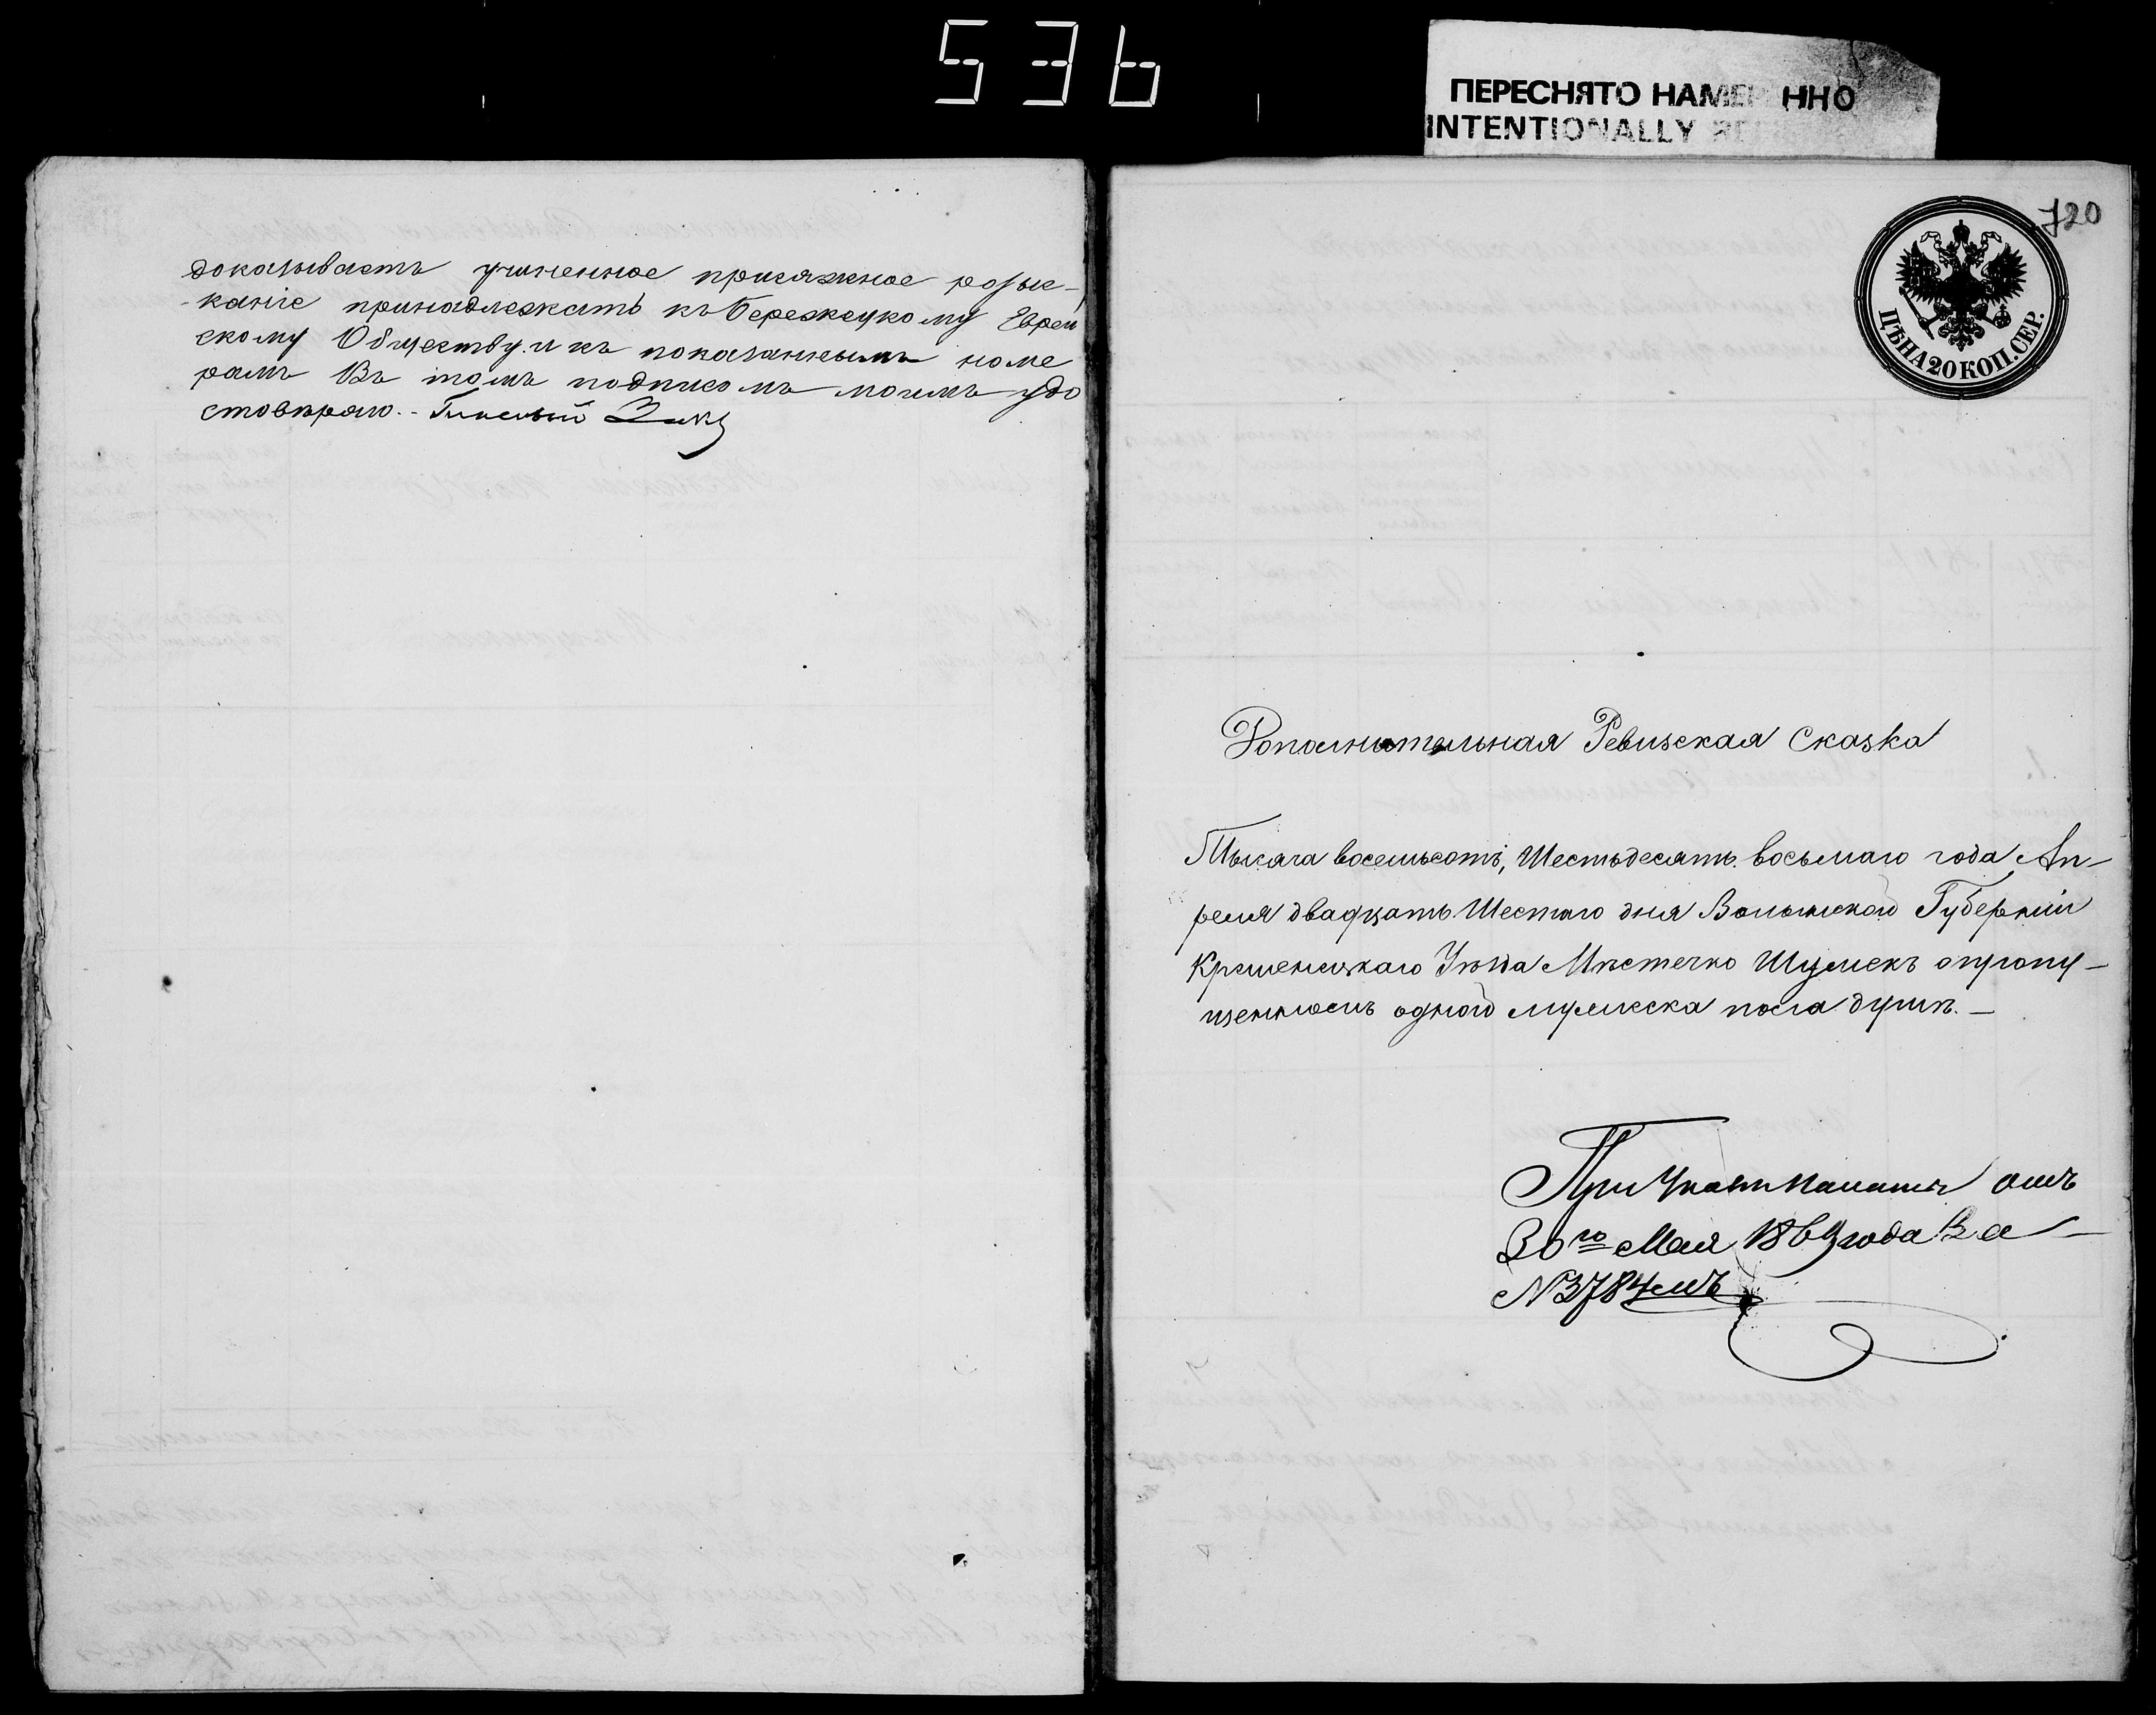 536
ПЕРЕСНЯТО НАМЕ ННО
INTENTIONALLY RE
доказываетъ учиненное присяжное розыс-
каніе принадлежатъ къ Бережецкому Еврей
скому Обществу и къ показаннымъ номе
рамъ Въ томъ подписомъ моимъ удо
стовѣряю.-
720
ЦѢНА 20 КОП. СЕР.
Дополнительная Ревизская Сказка
Тысяча восемьсотъ, Шестьдесятъ восьмаго года Ап-
реля двадцать Шестаго дня Волынской Губерніи
Кременецкаго Уѣзда Мѣстечко Шумскъ о пропу-
щенной одной мужеска пола душѣ.-
При Указѣ Палаты отъ
30го Мая 1869 года за
№3784мъ